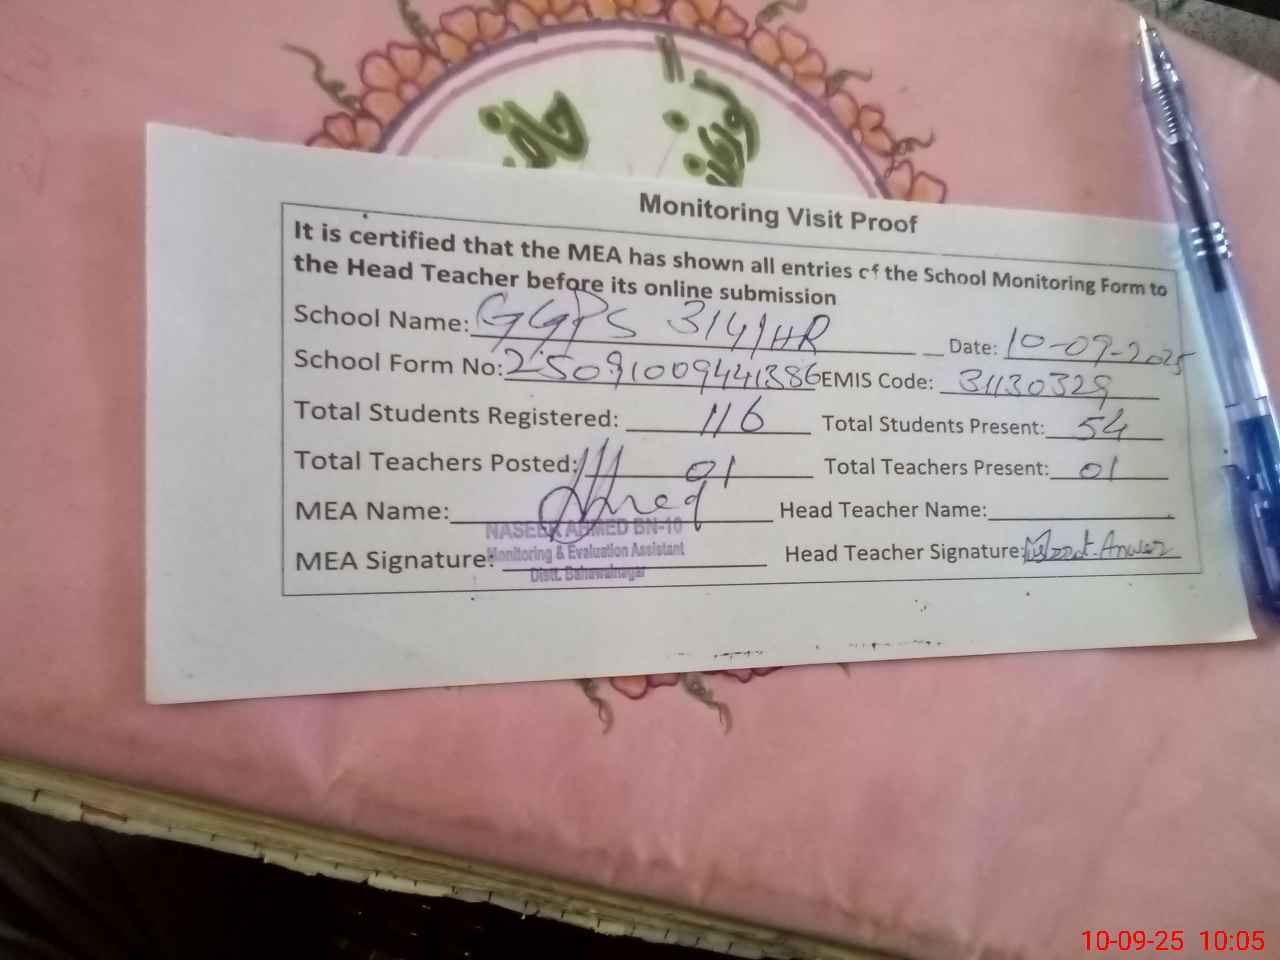 Monitoring Visit Proof
It is certified that the MEA has shown all entries of the School Monitoring Form to
the Head Teacher before its online submission
School Name: GGPS 314/HR Date: 10-09-2025
School Form No: 25091009441386 EMIS Code: 31130329
Total Students Registered: 116 Total Students Present: 54
Total Teachers Posted: 01 Total Teachers Present: 01
MEA Name: Head Teacher Name:
NASEER AHMED BN-10
MEA Signature: Monitoring & Evaluation Assistant Head Teacher Signature: Anwer
Distt. Bahawalnagar
10-09-25 10:05